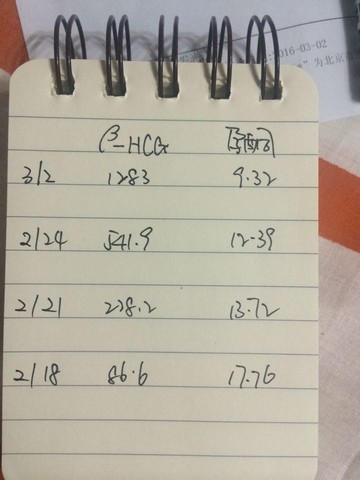 2016-03-02
”为北京
β-HCG 孕酮
3/2 1283 9.32
2/24 541.9 12.39
2/21 278.2 13.72
2/18 86.6 17.76